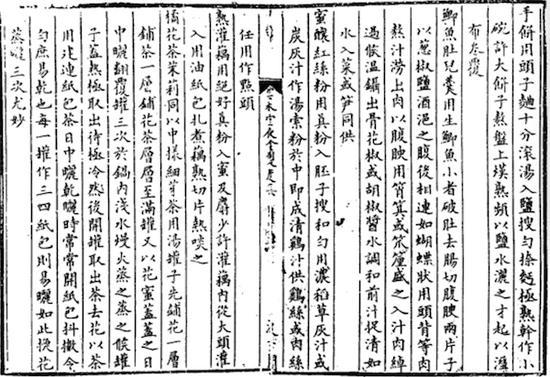 手餅用頭子麵十分滾湯入鹽搜勻捺麪極熟幹作小
碗許大餅子熬盤上煿熟頻以鹽水灑之才起以溼
布卷覆
鯽魚肚兒羹用生鯽魚小者破肚去腸切腹腴兩片子
以葱椒鹽酒浥之腹後相連如蝴蝶狀用頭背等肉
熬汁撈出肉以腹腴用筲箕或笊籬盛之入汁肉焯
過候溫鑷出骨花椒或胡椒醬水調和前汁捉清如
水入菜或笋同供
蜜釀紅絲粉用真粉入胚子搜和勻用濃稻草灰汁或
炭灰汁作湯索粉於中即成清鷄汁供鷄絲或肉絲
任用作㸃頭
熟灌藕用絕好真粉入蜜及麝少許灌藕內從大頭灌
入用油紙包扎煮藕熟切片熱啖之
橘花茶茉莉同以中樣細芽茶用湯罐子先鋪花一層
鋪茶一層鋪花茶層層至滿罐又以花蜜蓋蓋之日
中曬翻覆罐三次於鍋內淺水熳火蒸之蒸之候罐
子蓋熱極取出待極冷然後開罐取出茶去花以茶
用建連紙包茶日中曬乾曬時常常開紙包抖擻令
勻庶易乾也每一罐作三四紙包則易曬如此換花
蒸曬三次尤妙